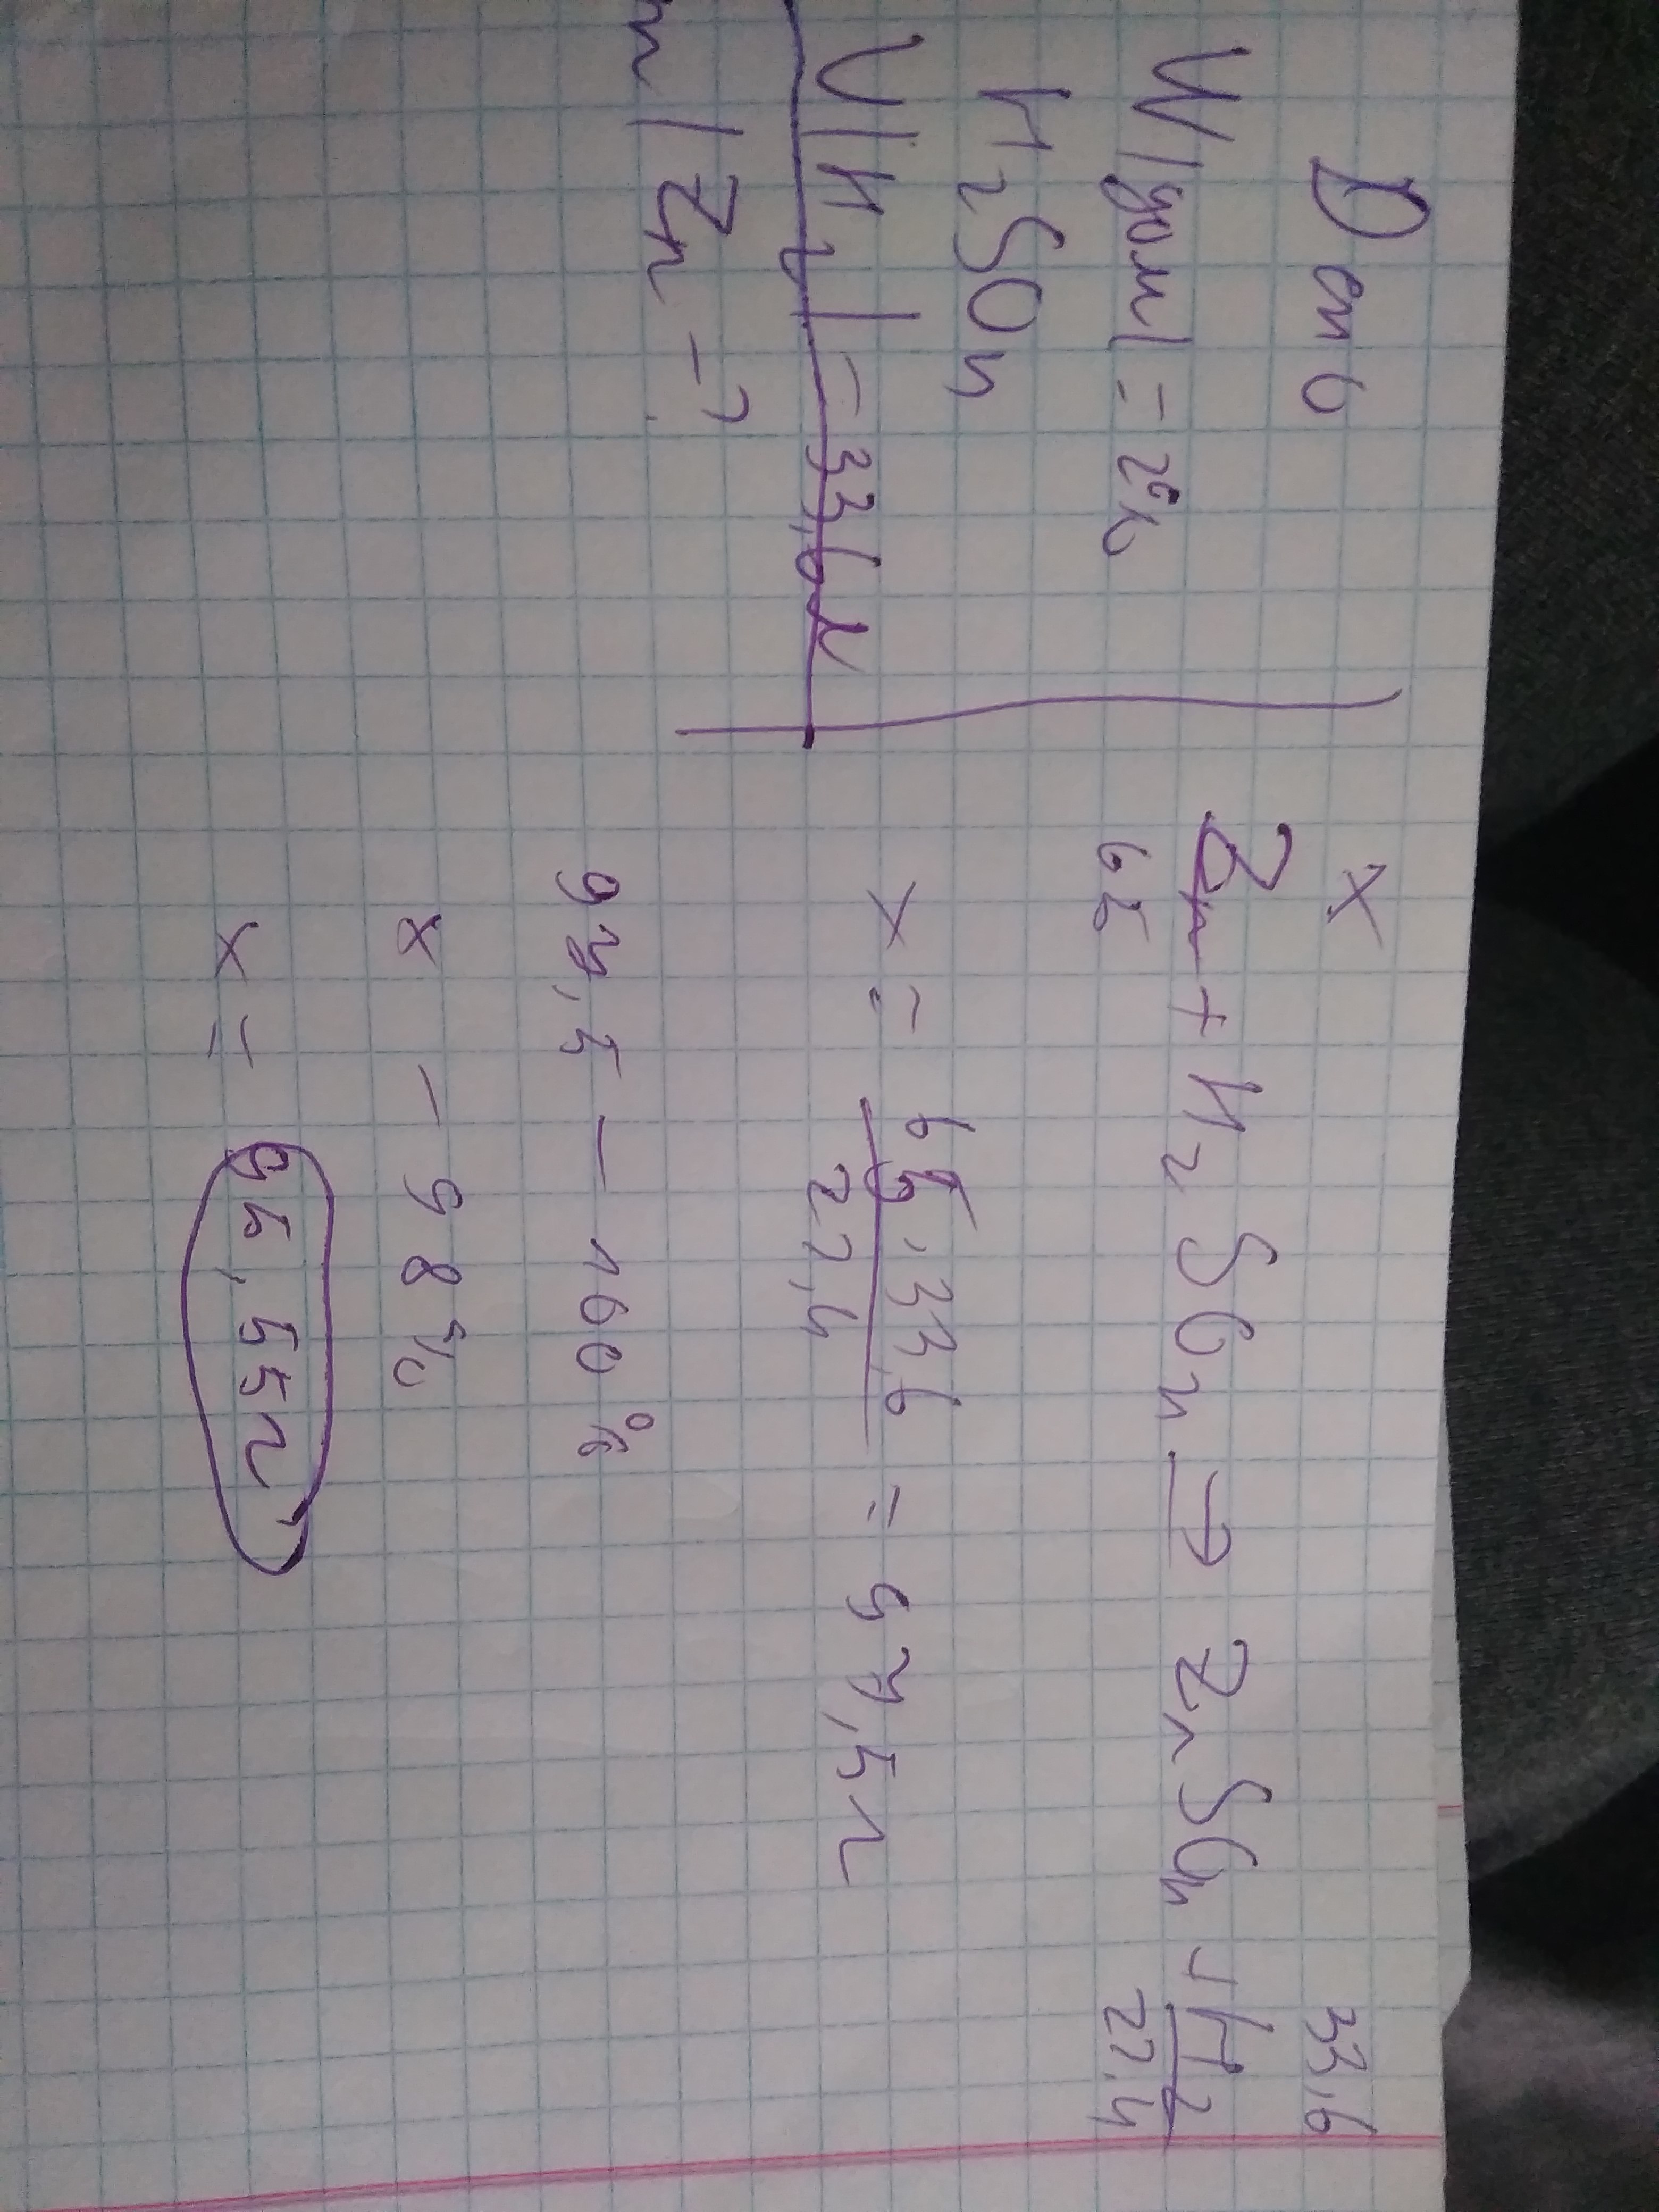 Дано
W(дом) = 2%
H2SO4
V(H2) = 33,6л
m(Zn - ?
x 33,6
Zn + H2SO4 → ZnSO4 + H2
65 22,4
x = 65 · 33,6 / 22,4 = 97,5г
97,5 - 100%
x - 98%
x = 95,55г